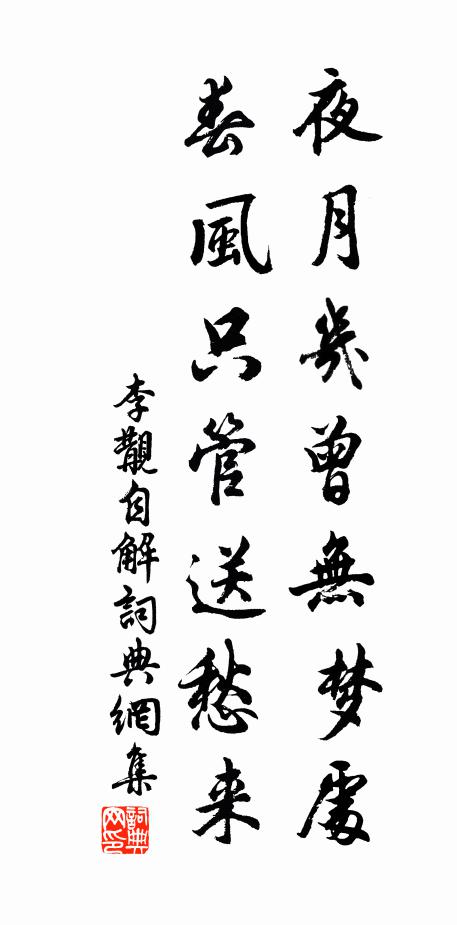 夜月幾曾無梦處
春風只管送愁来
李觀自解詞典網集
詞典网印